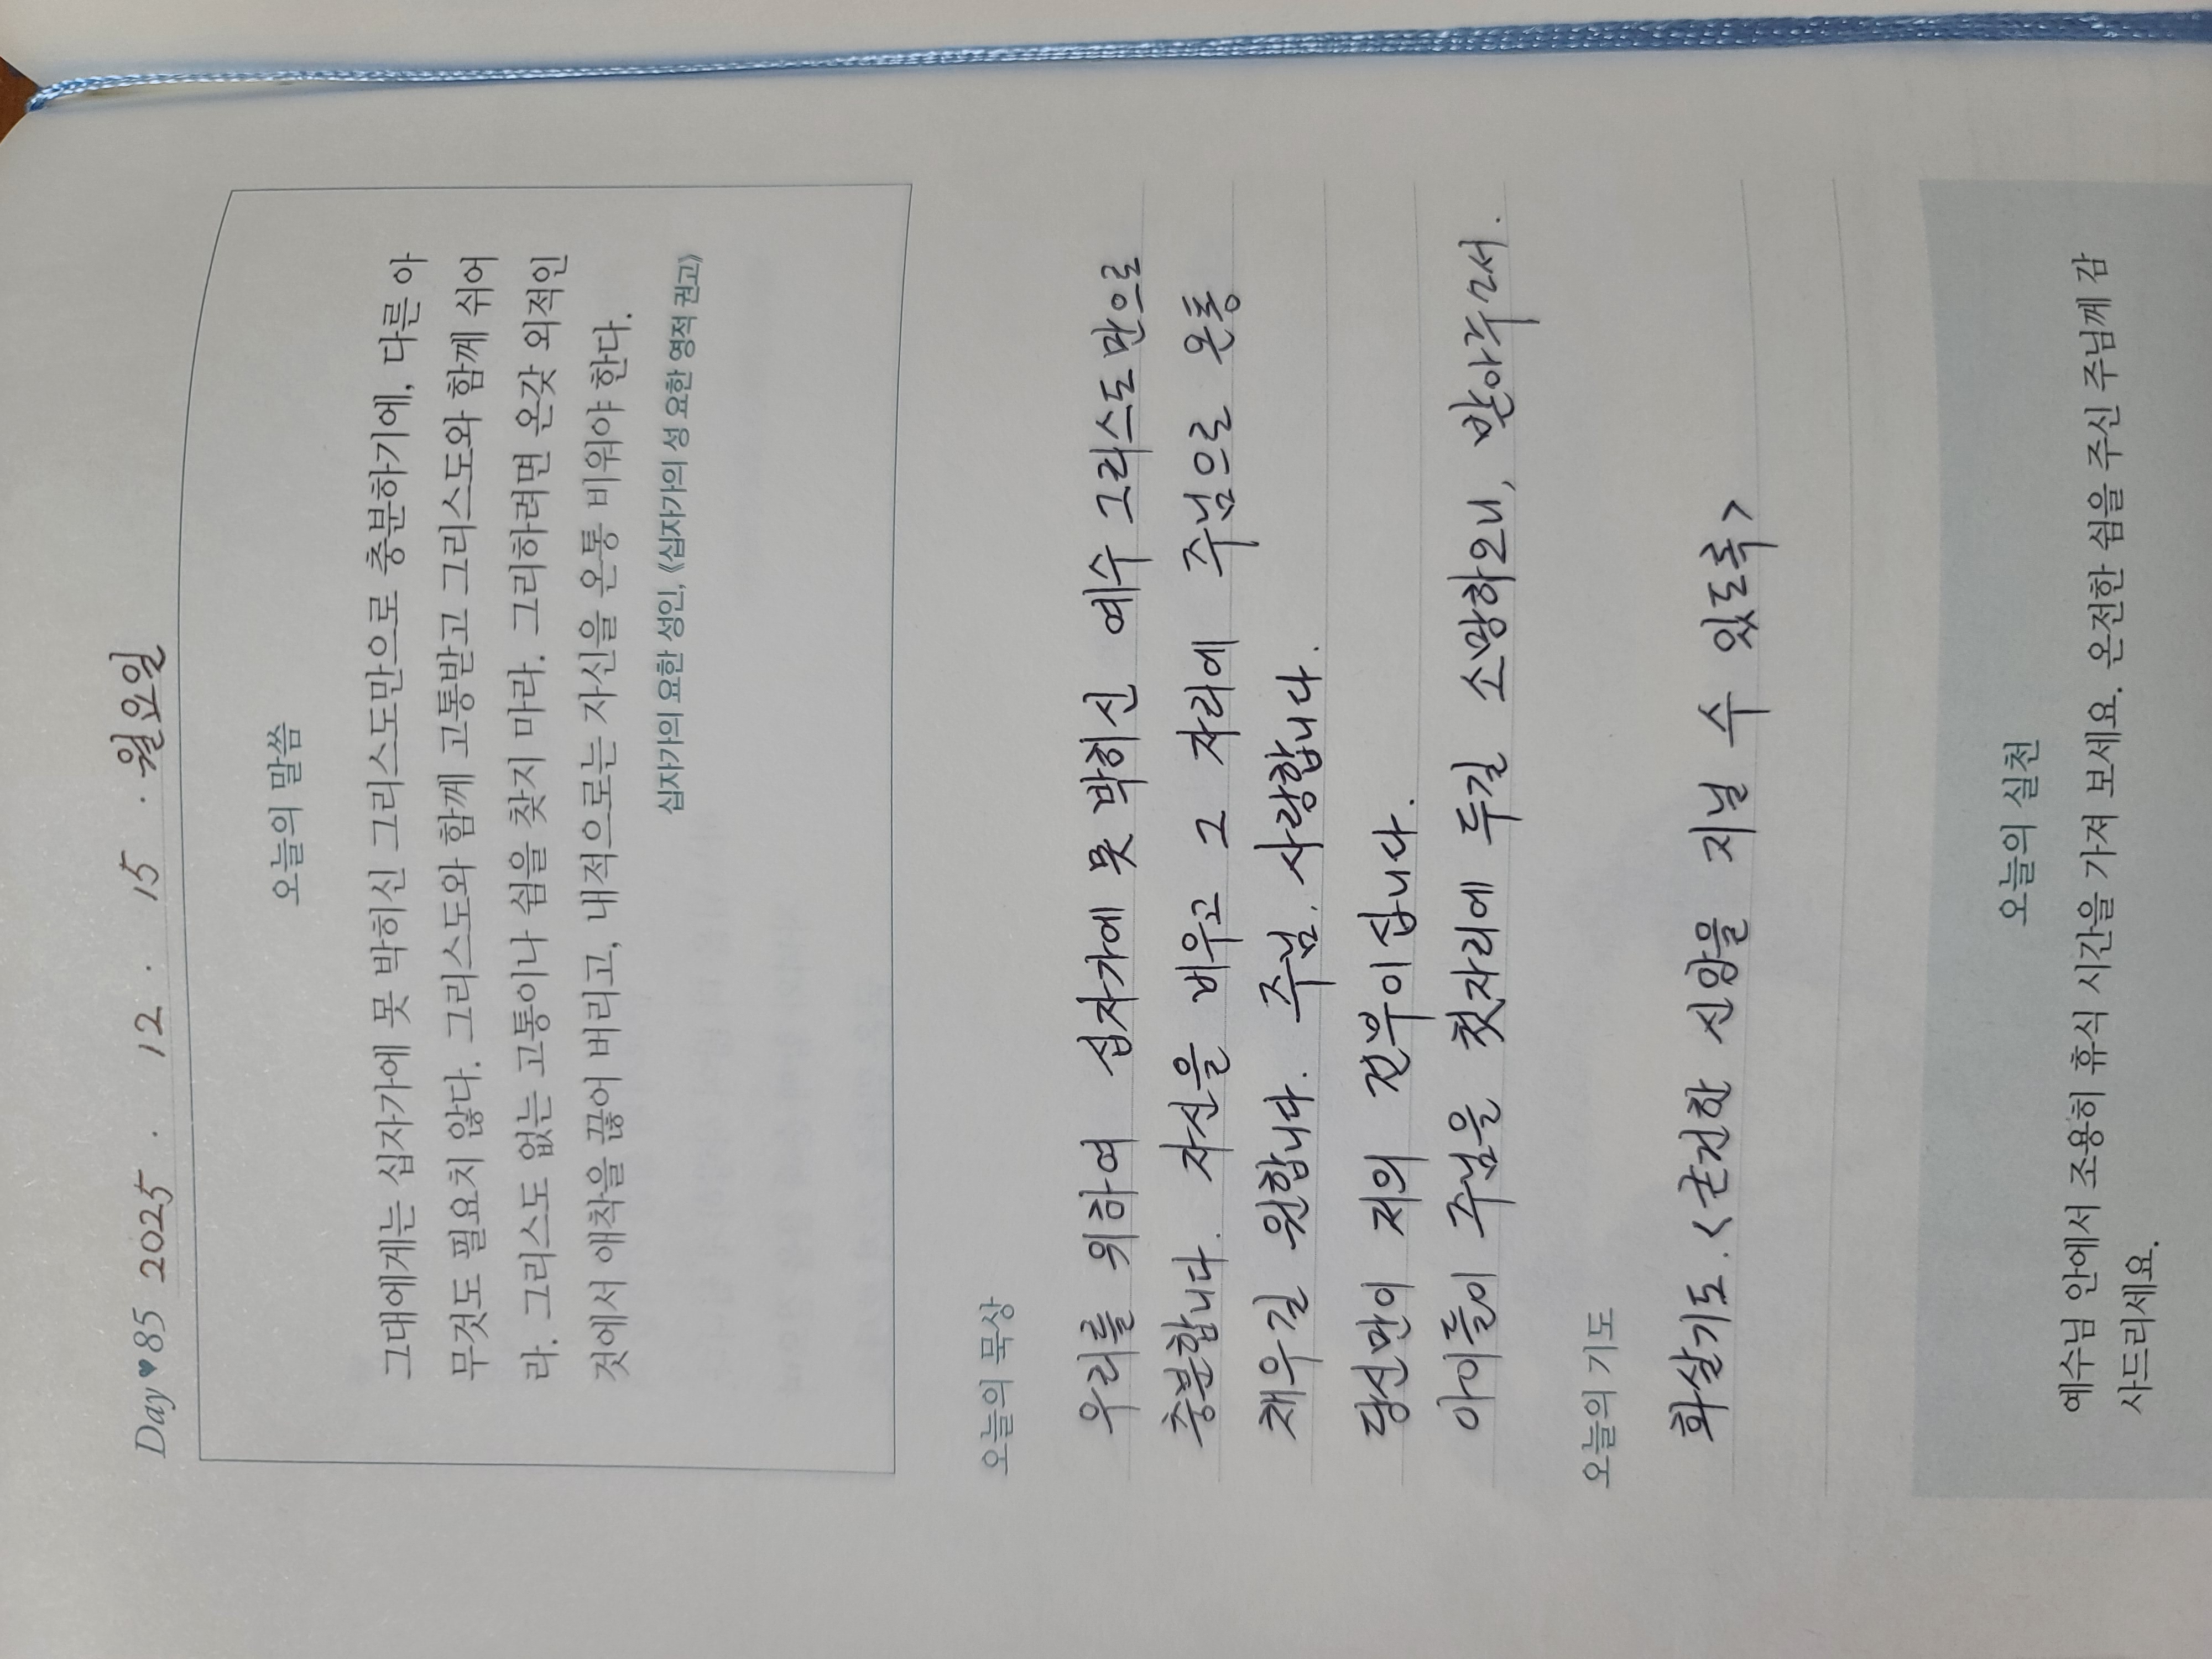 Day♥85 2025. 12. 15. 월요일
오늘의 말씀
그대에게는 십자가에 못 박히신 그리스도만으로 충분하기에, 다른 아
무것도 필요치 않다. 그리스도와 함께 고통받고 그리스도와 함께 쉬어
라. 그리스도 없는 고통이나 쉼을 찾지 마라. 그리하려면 온갖 외적인
것에서 애착을 끊어 버리고, 내적으로는 자신을 온통 비워야 한다.
십자가의 요한 성인, 《십자가의 성 요한 영적 권고》
오늘의 묵상
우리를 위하여 십자가에 못 박히신 예수 그리스도 만으로
충분합니다. 자신을 비우고 그 자리에 주님으로 온통
채우길 원합니다. 주님, 사랑합니다.
당신만이 저의 전부이십니다.
아이들이 주님을 첫자리에 두길 소망하오니, 받아주소서.
오늘의 기도
화살기도. <굳건한 신앙을 지닐 수 있도록>
오늘의 실천
예수님 안에서 조용히 휴식 시간을 가져 보세요. 온전한 쉼을 주신 주님께 감
사드리세요.